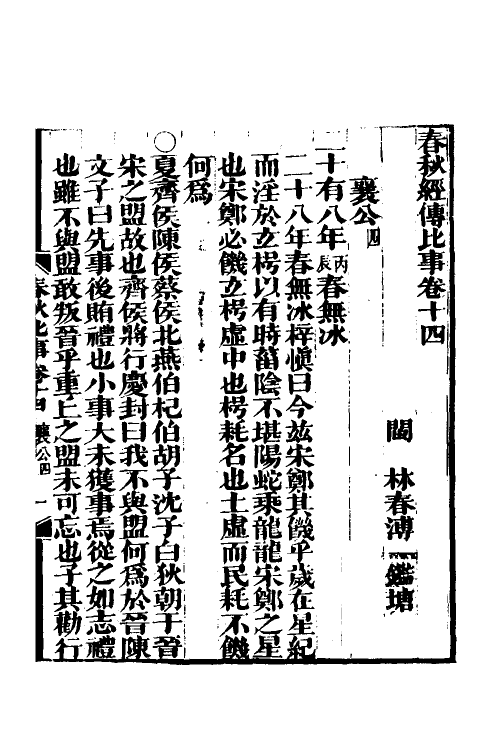 春秋經傳比事卷十四
閩 林春溥 鑑塘
襄公四
二十有八年丙辰春無冰
二十八年春無冰梓慎曰今玆宋鄭其饑乎歲在星紀
而淫於玄枵以有時菑陰不堪陽蛇乘龍龍宋鄭之星
也宋鄭必饑玄枵虛中也枵耗名也土虛而民耗不饑
何爲
○夏齊侯陳侯蔡侯北燕伯杞伯胡子沈子白狄朝于晉
宋之盟故也齊侯將行慶封曰我不與盟何爲於晉陳
文子曰先事後賄禮也小事大未獲事焉從之如志禮
也雖不與盟敢叛晉乎重丘之盟未可忘也子其勸行
春秋比事卷十四 襄公四 一